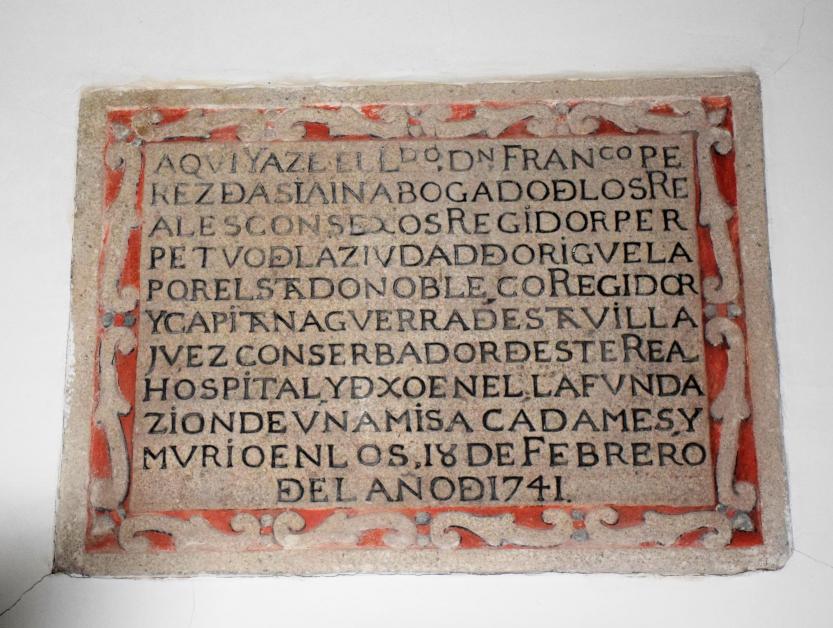 AQVIYAZEELLDO,DNFRANCOPE
REZĐASIAINABOGADOĐLOSRE
ALESCONSEXOSREGIDORPER
PETVOĐLAZIVDADĐORIGVELA
PORELSTADONOBLE,COREGIDOR
YCAPITANAGVERRADESTAVILLA
JVEZCONSERBADORĐESTEREAL
HOSPITAL,YĐXOENEL,LAFVNDA
ZIONDEVNAMISA CADAMES,Y
MVRIOENLOS,18DEFEBRERO
ĐEL AÑOĐ1741.